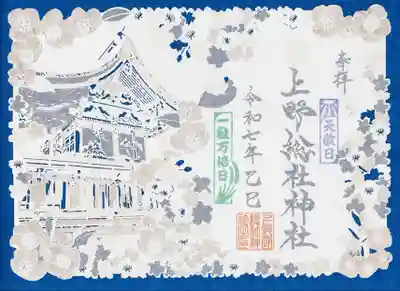 奉拝
天赦日
上野総社神社
令和七年乙巳
一粒万倍日